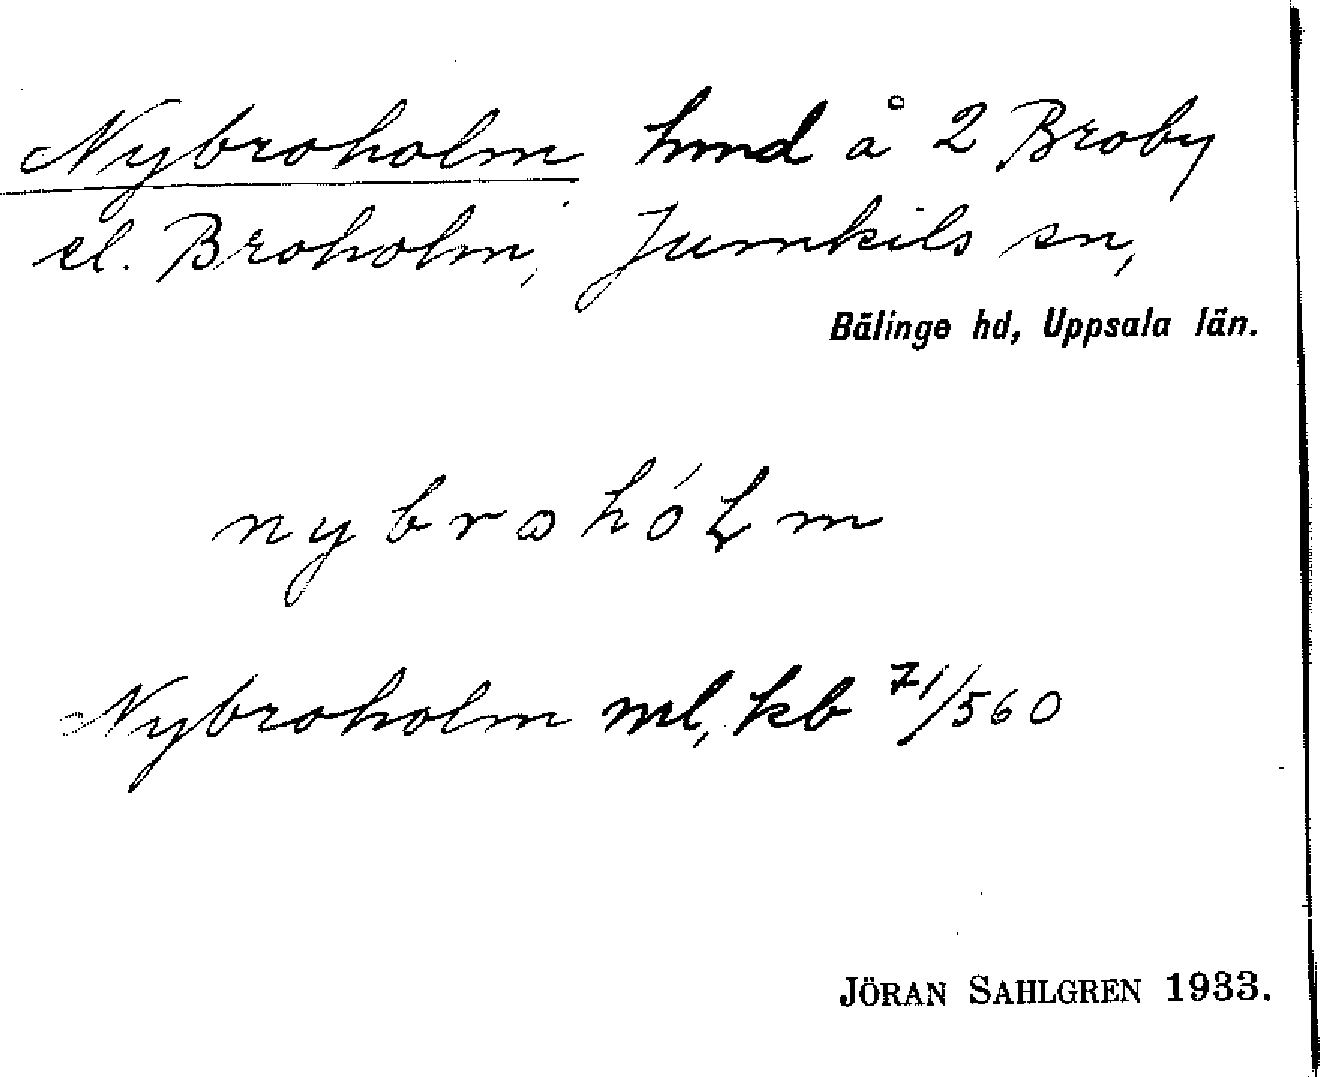 Nybroholm hmd å 2 Broby
el. Broholm, Jumkils sn,
Bälinge hd, Uppsala län.
nybrohólm
Nybroholm ml, kb 71/560
JÖRAN SAHLGREN 1933.